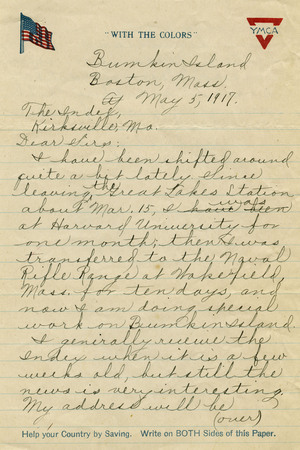 "WITH THE COLORS"
YMCA
Bumkin Island
Boston, Mass.
May 5, 1917.
The Index,
Kirksville, Mo.
Dear Sirs:
I have been shifted around
quite a bit lately. Since
leaving the Great Lakes Station
about Mar. 15, I have been was
at Harvard University for
one month; then I was
transferred to the Naval
Rifle Range at Wakefield,
Mass. for ten days, and
now I am doing special
work on Bumkin Island.
I generally recieve the
Index when it is a few
weeks old, but still the
news is very interesting.
My address will be
(over)
Help your Country by Saving. Write on BOTH Sides of this Paper.